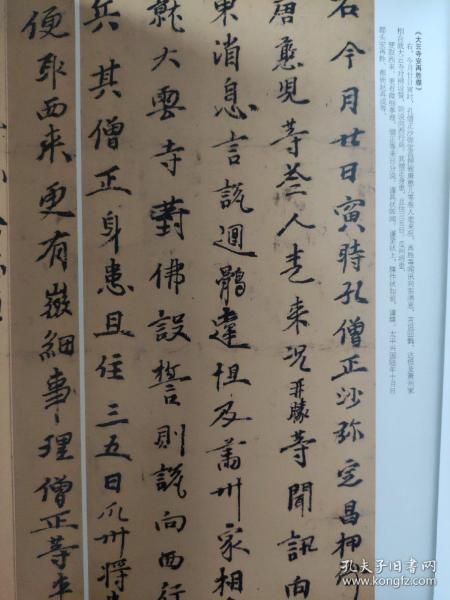 右今月廿日寅時孔僧正沙弥定昌押衙
唐憨児等叁人走来况再勝等聞訊向
東消息言説迴鶻達怛及肅州家相
就大雲寺對佛設誓則説向西行
兵其僧正身患且住三五日瓜州將患
便取西来更有嶶細事理僧正等来
《大云寺安再胜牒》
右,今月廿日寅时,孔僧正沙弥定昌押衙唐憨儿等叁人走来况。再胜等闻讯向东消息,言说回鹘、达怛及肃州家
相合就大云寺对佛设誓,则说向西行兵。其僧正身患,且住三五日,瓜州将患,
便取西来,更有微细事理,僧正等来日分说。谨具状
都头安再胜、都衙赵再成等。
孔夫子旧书网